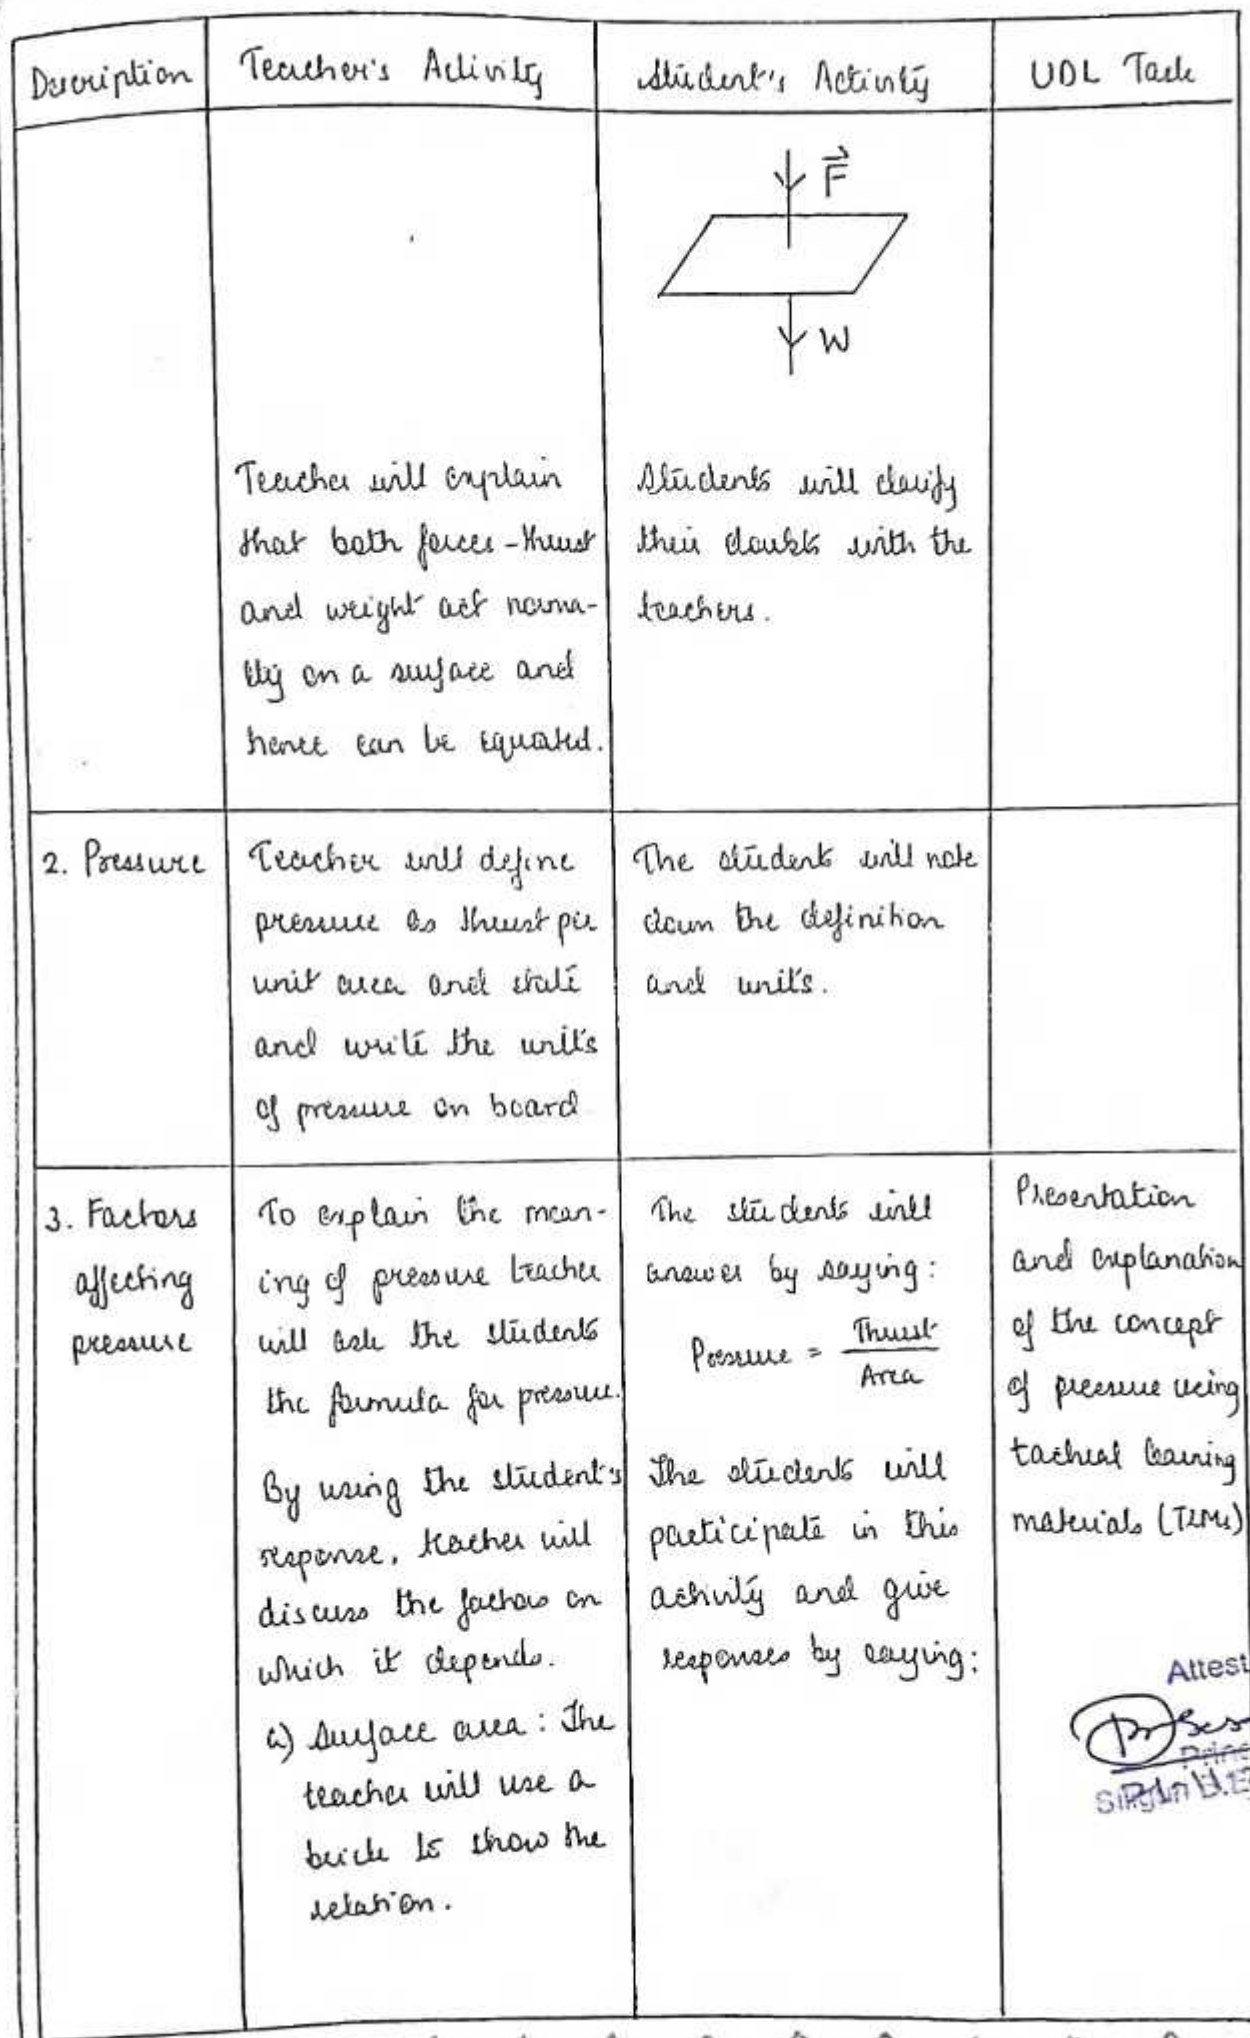 Description
Teacher's Activity
Student's Activity
UDL Task
F
W
Teacher will explain
that both forces - thrust
and weight act norma-
lly on a surface and
hence can be equated.
Students will clarify
their doubts with the
teachers.
2. Pressure
Teacher will define
pressure as thrust per
unit area and state
and write the units
of pressure on board
The students will note
down the definition
and units.
3. Factors
affecting
pressure
To explain the mean-
ing of pressure teacher
will ask the students
the formula for pressure.
By using the student's
response, teacher will
discuss the factors on
which it depends.
a) Surface area: The
teacher will use a
brick to show the
relation.
The students will
answer by saying:
Pressure = Thrust
Area
The students will
participate in this
activity and give
responses by saying:
Presentation
and explanation
of the concept
of pressure using
tacheal learning
materials (TLMs)
Attest